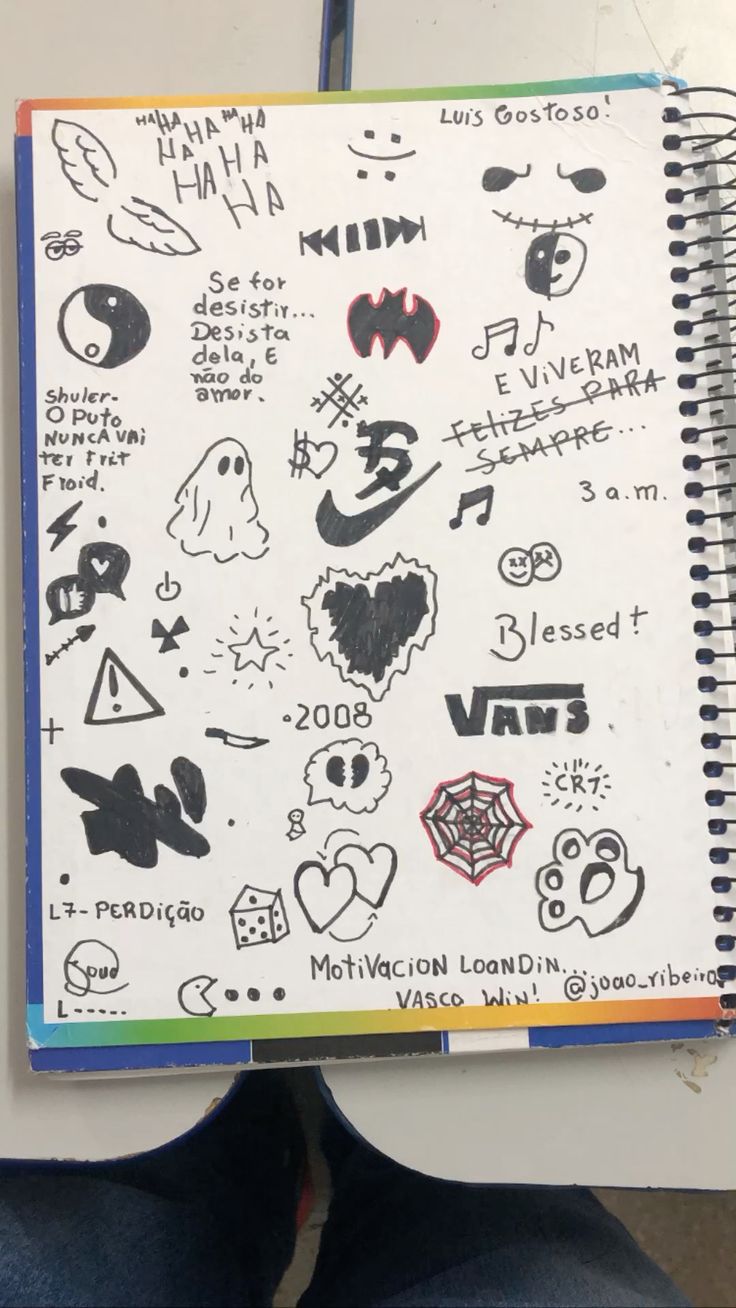 HA HA HA HA HA
HA HA
HA HA
HA
Luis Gostoso!
Se for
desistir...
Desista
dela, E
não do
amor.
E ViVERAM
FELIZES PARA
SEMPRE...
Shuler-
O Puto
NUNCA VAi
ter Frit
Froid.
3 a.m.
Blessed!
2008
VANS
CR7
L7- PERDiÇÃO
MotiVacion LOANDiN...
VASCO WiN!
@joao_ribeiro
L-----